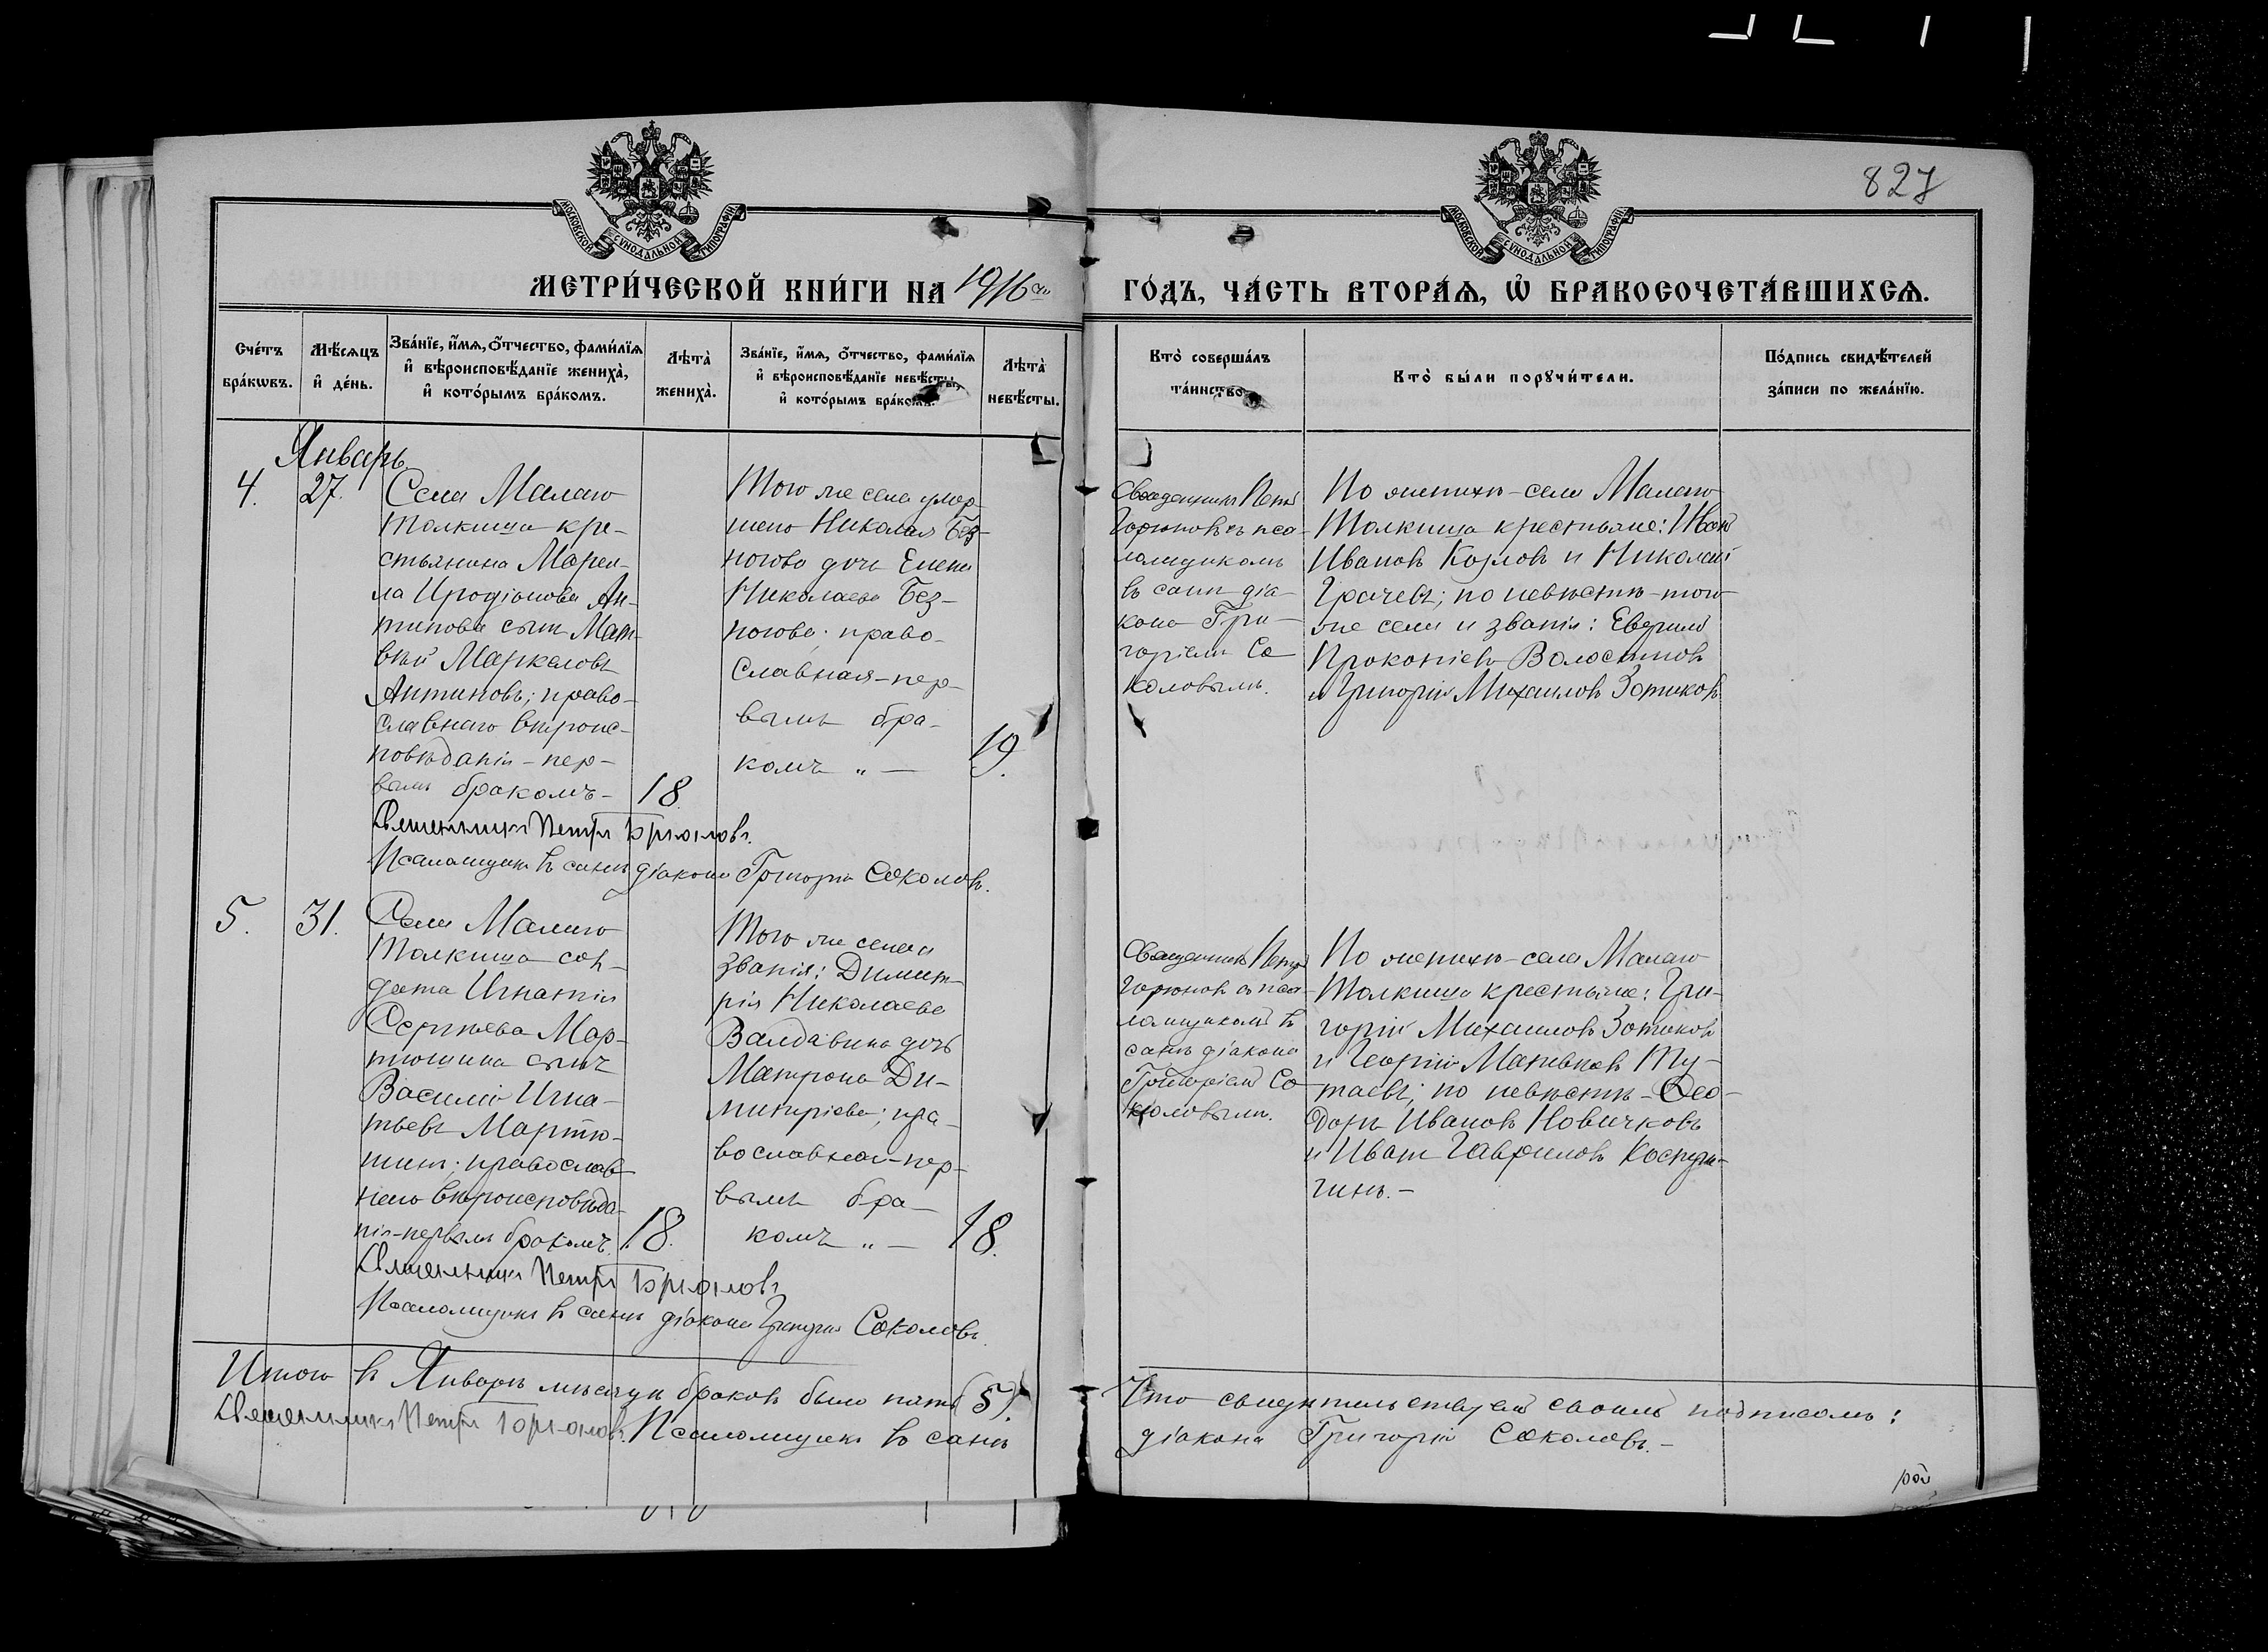 827
МОСКОВСКОЙ СУНОДАЛЬНОЙ ТИПОГРАФІИ
МОСКОВСКОЙ СУНОДАЛЬНОЙ ТИПОГРАФІИ
МЕТРИ́ЧЕСКОЙ КНИ́ГИ НА 1916 й
ГО́ДЪ, ЧА́СТЬ ВТОРА́Ѧ, Ѡ БРАКОСОЧЕТА́ВШИХСѦ.
Сче́тъ
бра́кѡвъ.
Мѣ́сѧцъ
и҆ де́нь.
Зва́нїе, и҆́мѧ, ѻ҆́тчество, фами́лїѧ
и҆ вѣроисповѣ́данїе жениха̀,
и҆ кото́рымъ бра́комъ.
Лѣта̀
жениха̀.
Зва́нїе, и҆́мѧ, ѻ҆́тчество, фами́лїѧ
и҆ вѣроисповѣ́данїе невѣ́сты,
и҆ кото́рымъ бра́комъ.
Лѣта̀
невѣ́сты.
Кто̀ соверша́лъ
та́инство.
Кто̀ бы́ли порꙋчи́тели.
По́дпись свидѣ́телей
за́писи по жела́нїю.
Январь
4.
27.
Села Малаго
Толкиша кре-
стьянина Марки-
ла Иродіонова Ан-
типова сынъ Мат-
вѣй Маркеловъ
Антиповъ; право-
славнаго вѣроис-
повѣданія - пер-
вымъ бракомъ -
18.
Того же села умер-
шаго Николая Без-
ногова дочь Елена
Николаева Без-
ногова; право-
славная - пер-
вымъ бра-
комъ „ —
19.
Священникъ Петръ
Горюновъ съ пса-
ломщикомъ
въ санѣ діа-
кона Гри-
горіемъ Со-
коловымъ.
По женихѣ - села Малаго
Толкиша крестьяне: Иванъ
Ивановъ Козловъ и Николай
Грачевъ; по невѣстѣ - того
же села и званія:
Прокопіевъ Волостновъ
и Григорій Михаиловъ Зотиковъ.
Священникъ Петръ Горюновъ.
Псаломщикъ въ санѣ діакона Григорій Соколовъ.
5.
31.
Села Малаго
Толкиша сол-
дата Игнатія
Сергѣева Мар-
тюшина сынъ
Василій Игна-
тьевъ Мартю-
шинъ; православ-
наго вѣроисповѣда-
нія - первымъ бракомъ.
18.
Того же села и
званія: Димит-
рія Николаева
Валдавина дочь
Матрона Ди-
митріева; пра-
вославная - пер-
вымъ бра-
комъ „ —
18.
Священникъ Петръ
Горюновъ съ пса-
ломщикомъ въ
санѣ діакона
Григоріемъ Со-
коловымъ.
По женихѣ - села Малаго
Толкиша крестьяне: Гри-
горій Михаиловъ Зотиковъ
и Георгій Матвѣевъ Ту-
таевъ; по невѣстѣ - Ѳео-
доръ Ивановъ Новичковъ
и Иванъ Гавриловъ
гинъ. -
Священникъ Петръ Горюновъ
Псаломщикъ въ санѣ діакона Григорій Соколовъ.
Итого въ Январѣ мѣсяцѣ браковъ было пять (5).
Что свидѣтельствуемъ своимъ подписомъ:
Священникъ Петръ Горюновъ. Псаломщикъ въ санѣ
діакона Григорій Соколовъ. -